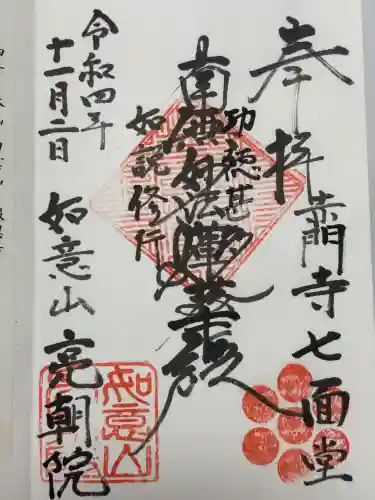 奉拝
寺七面堂
南無妙法蓮華経
功徳甚多
如説修行
令和四年
十一月二日
如意山 亮朝院
如意山